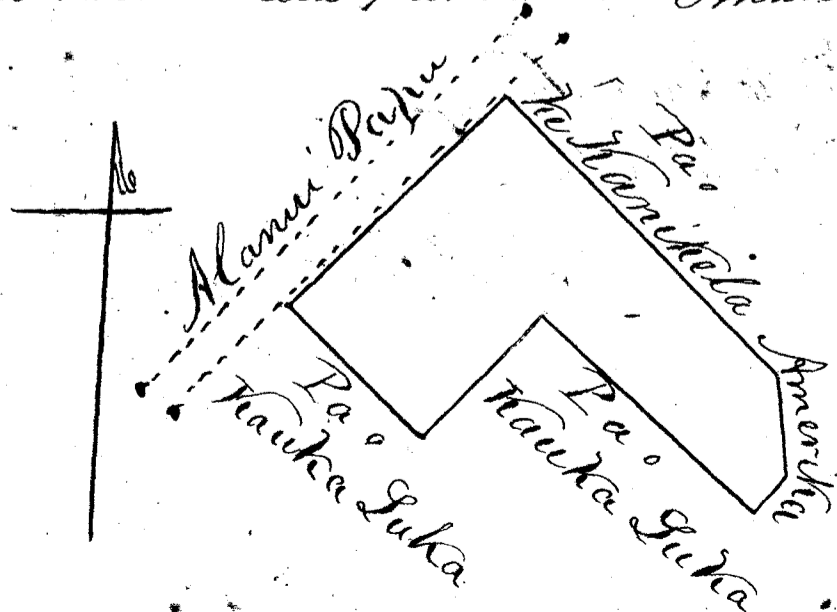 Alanui Papu
Pa o
Ke Kanikela Amerika
Pa o
Kauka Luka
Pa o
Kauka Luka